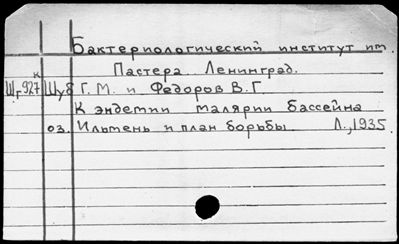 Бактериологический институт им.
Пастера. Ленинград.
к
Шг927 Шуб Г. М. и Федоров В. Г
К эндемии малярии бассейна
оз. Ильмень и план борьбы. Л., 1935.